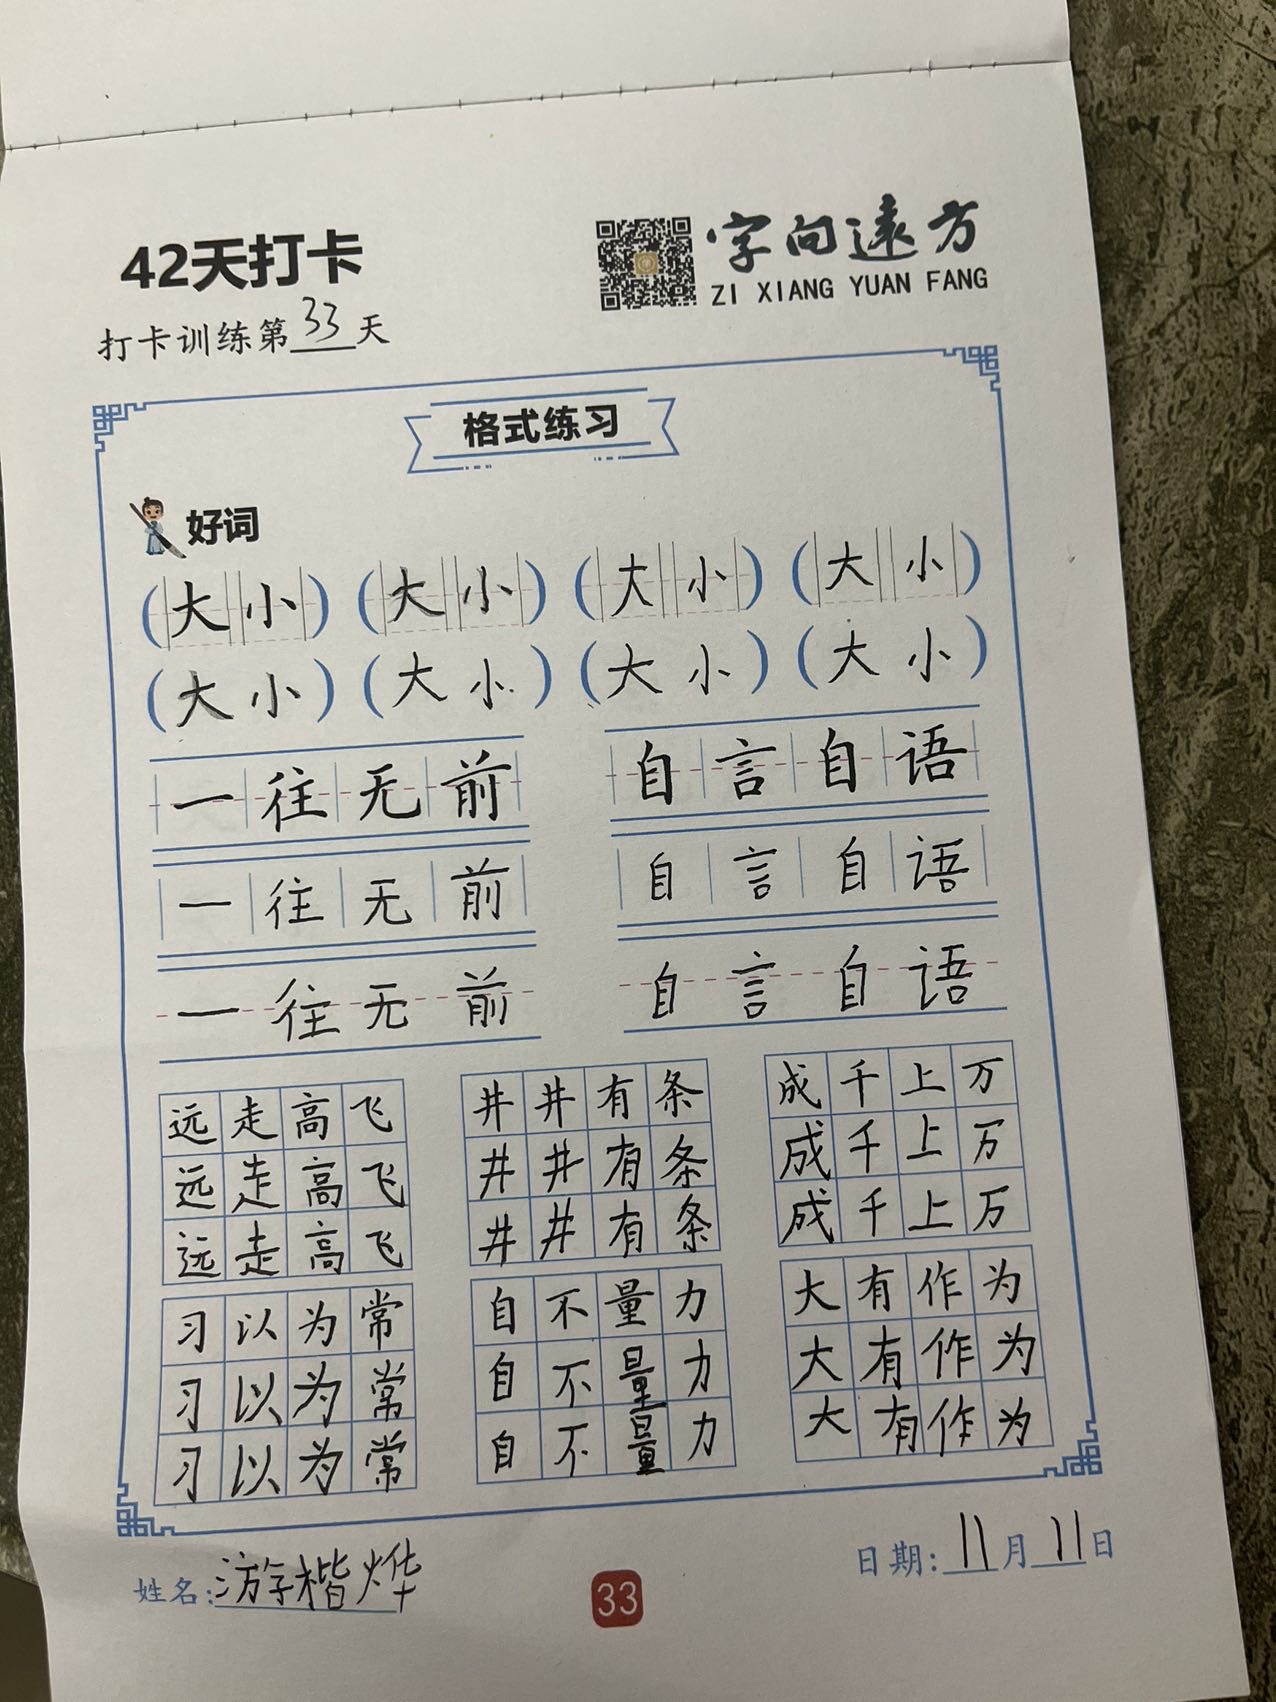 42天打卡
字向遠方
ZI XIANG YUAN FANG
打卡训练第33天
格式练习
好词
(大小) (大小) (大小) (大小)
(大小) (大小) (大小) (大小)
一往无前 自言自语
一往无前 自言自语
一往无前 自言自语
远走高飞 井井有条 成千上万
远走高飞 井井有条 成千上万
远走高飞 井井有条 成千上万
习以为常 自不量力 大有作为
习以为常 自不量力 大有作为
习以为常 自不量力 大有作为
姓名:游楷烨
33
日期:11月11日